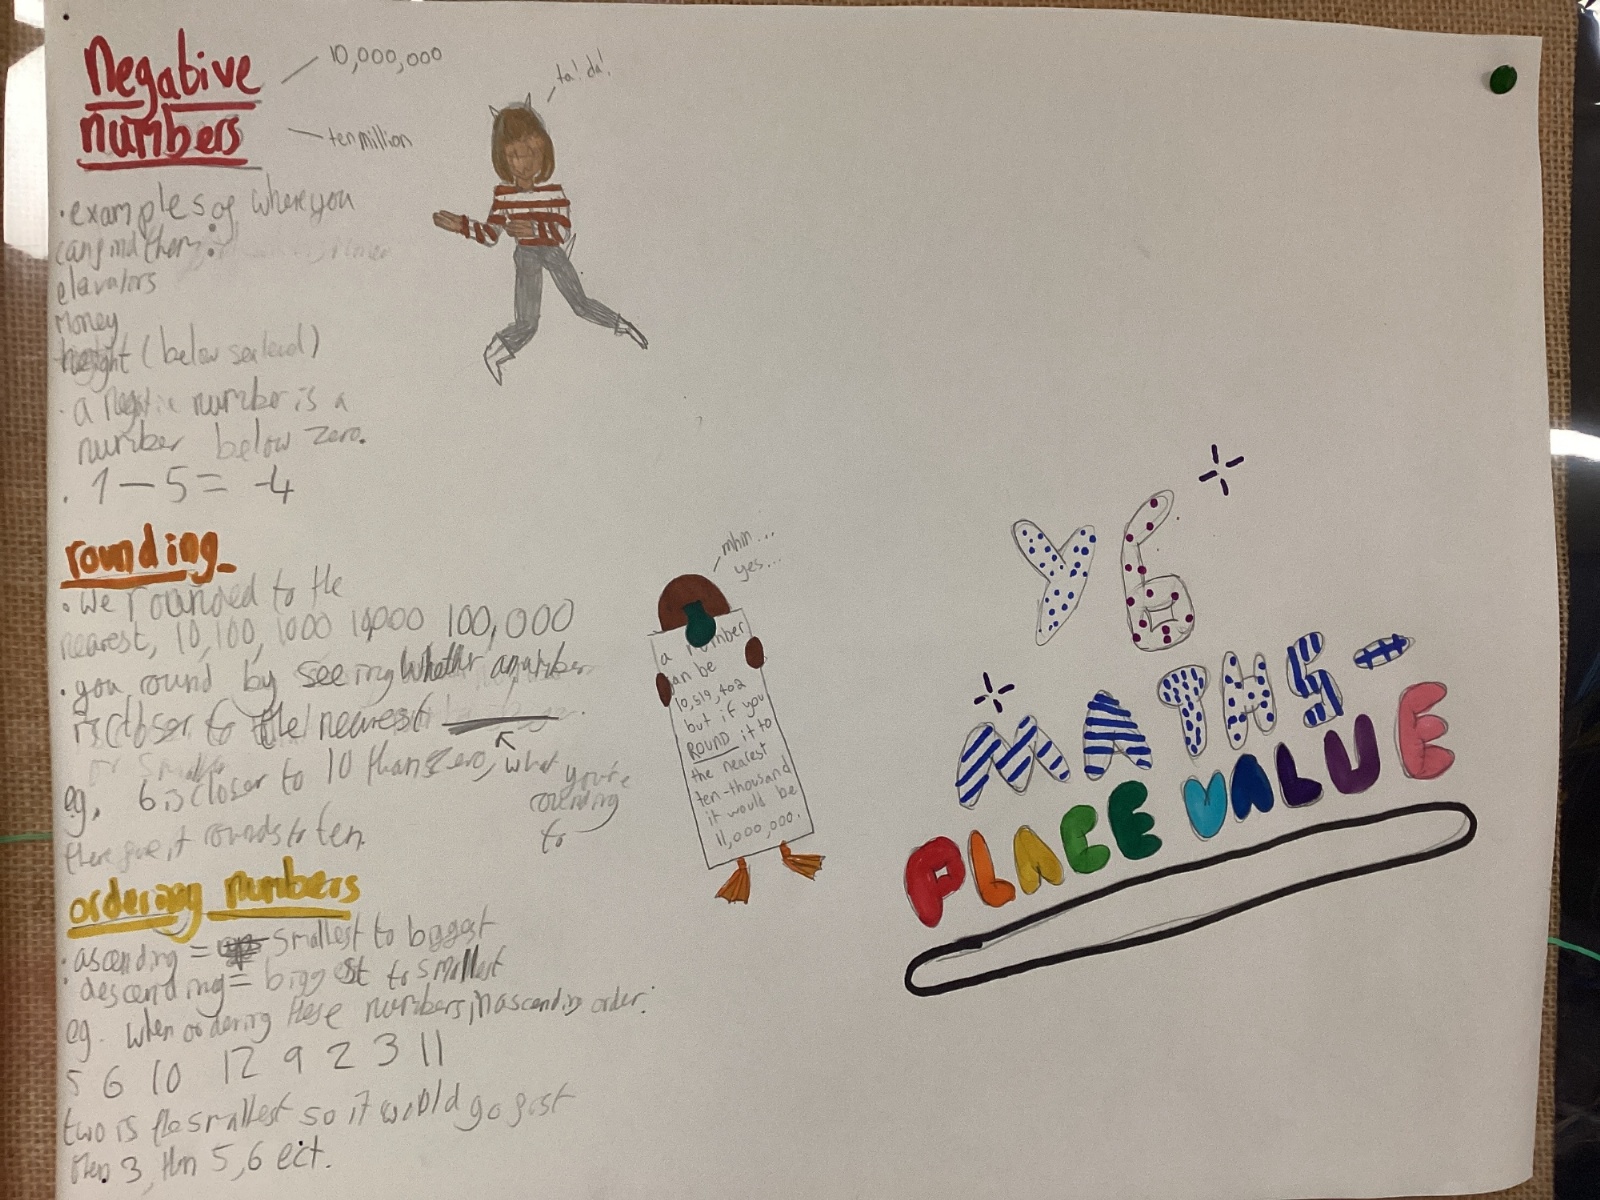 Negative
numbers
10,000,000
ten million
ta! da!
· examples of where you
can find them:
elavators
Money
height (below sea level)
· a negative number is a
number below zero.
· 1 - 5 = -4
rounding
· We rounded to the
nearest, 10, 100, 1000 10,000 100,000
· you round by seeing whether a number
is closer to the nearest
eg. 6 is closer to 10 than zero,
there fore it rounds to ten.
what you're
rounding
to
ordering numbers
· ascending = smallest to biggest
· descending = biggest to smallest
eg. when ordering these numbers in ascending order:
5 6 10 12 9 2 3 11
two is the smallest so it would go first
then 3, then 5,6 ect.
mhm...
yes...
a number
can be
10,519,402
but if you
ROUND it to
the nearest
ten-thousand
it would be
11,000,000.
Y6
MATHS-
PLACE VALUE